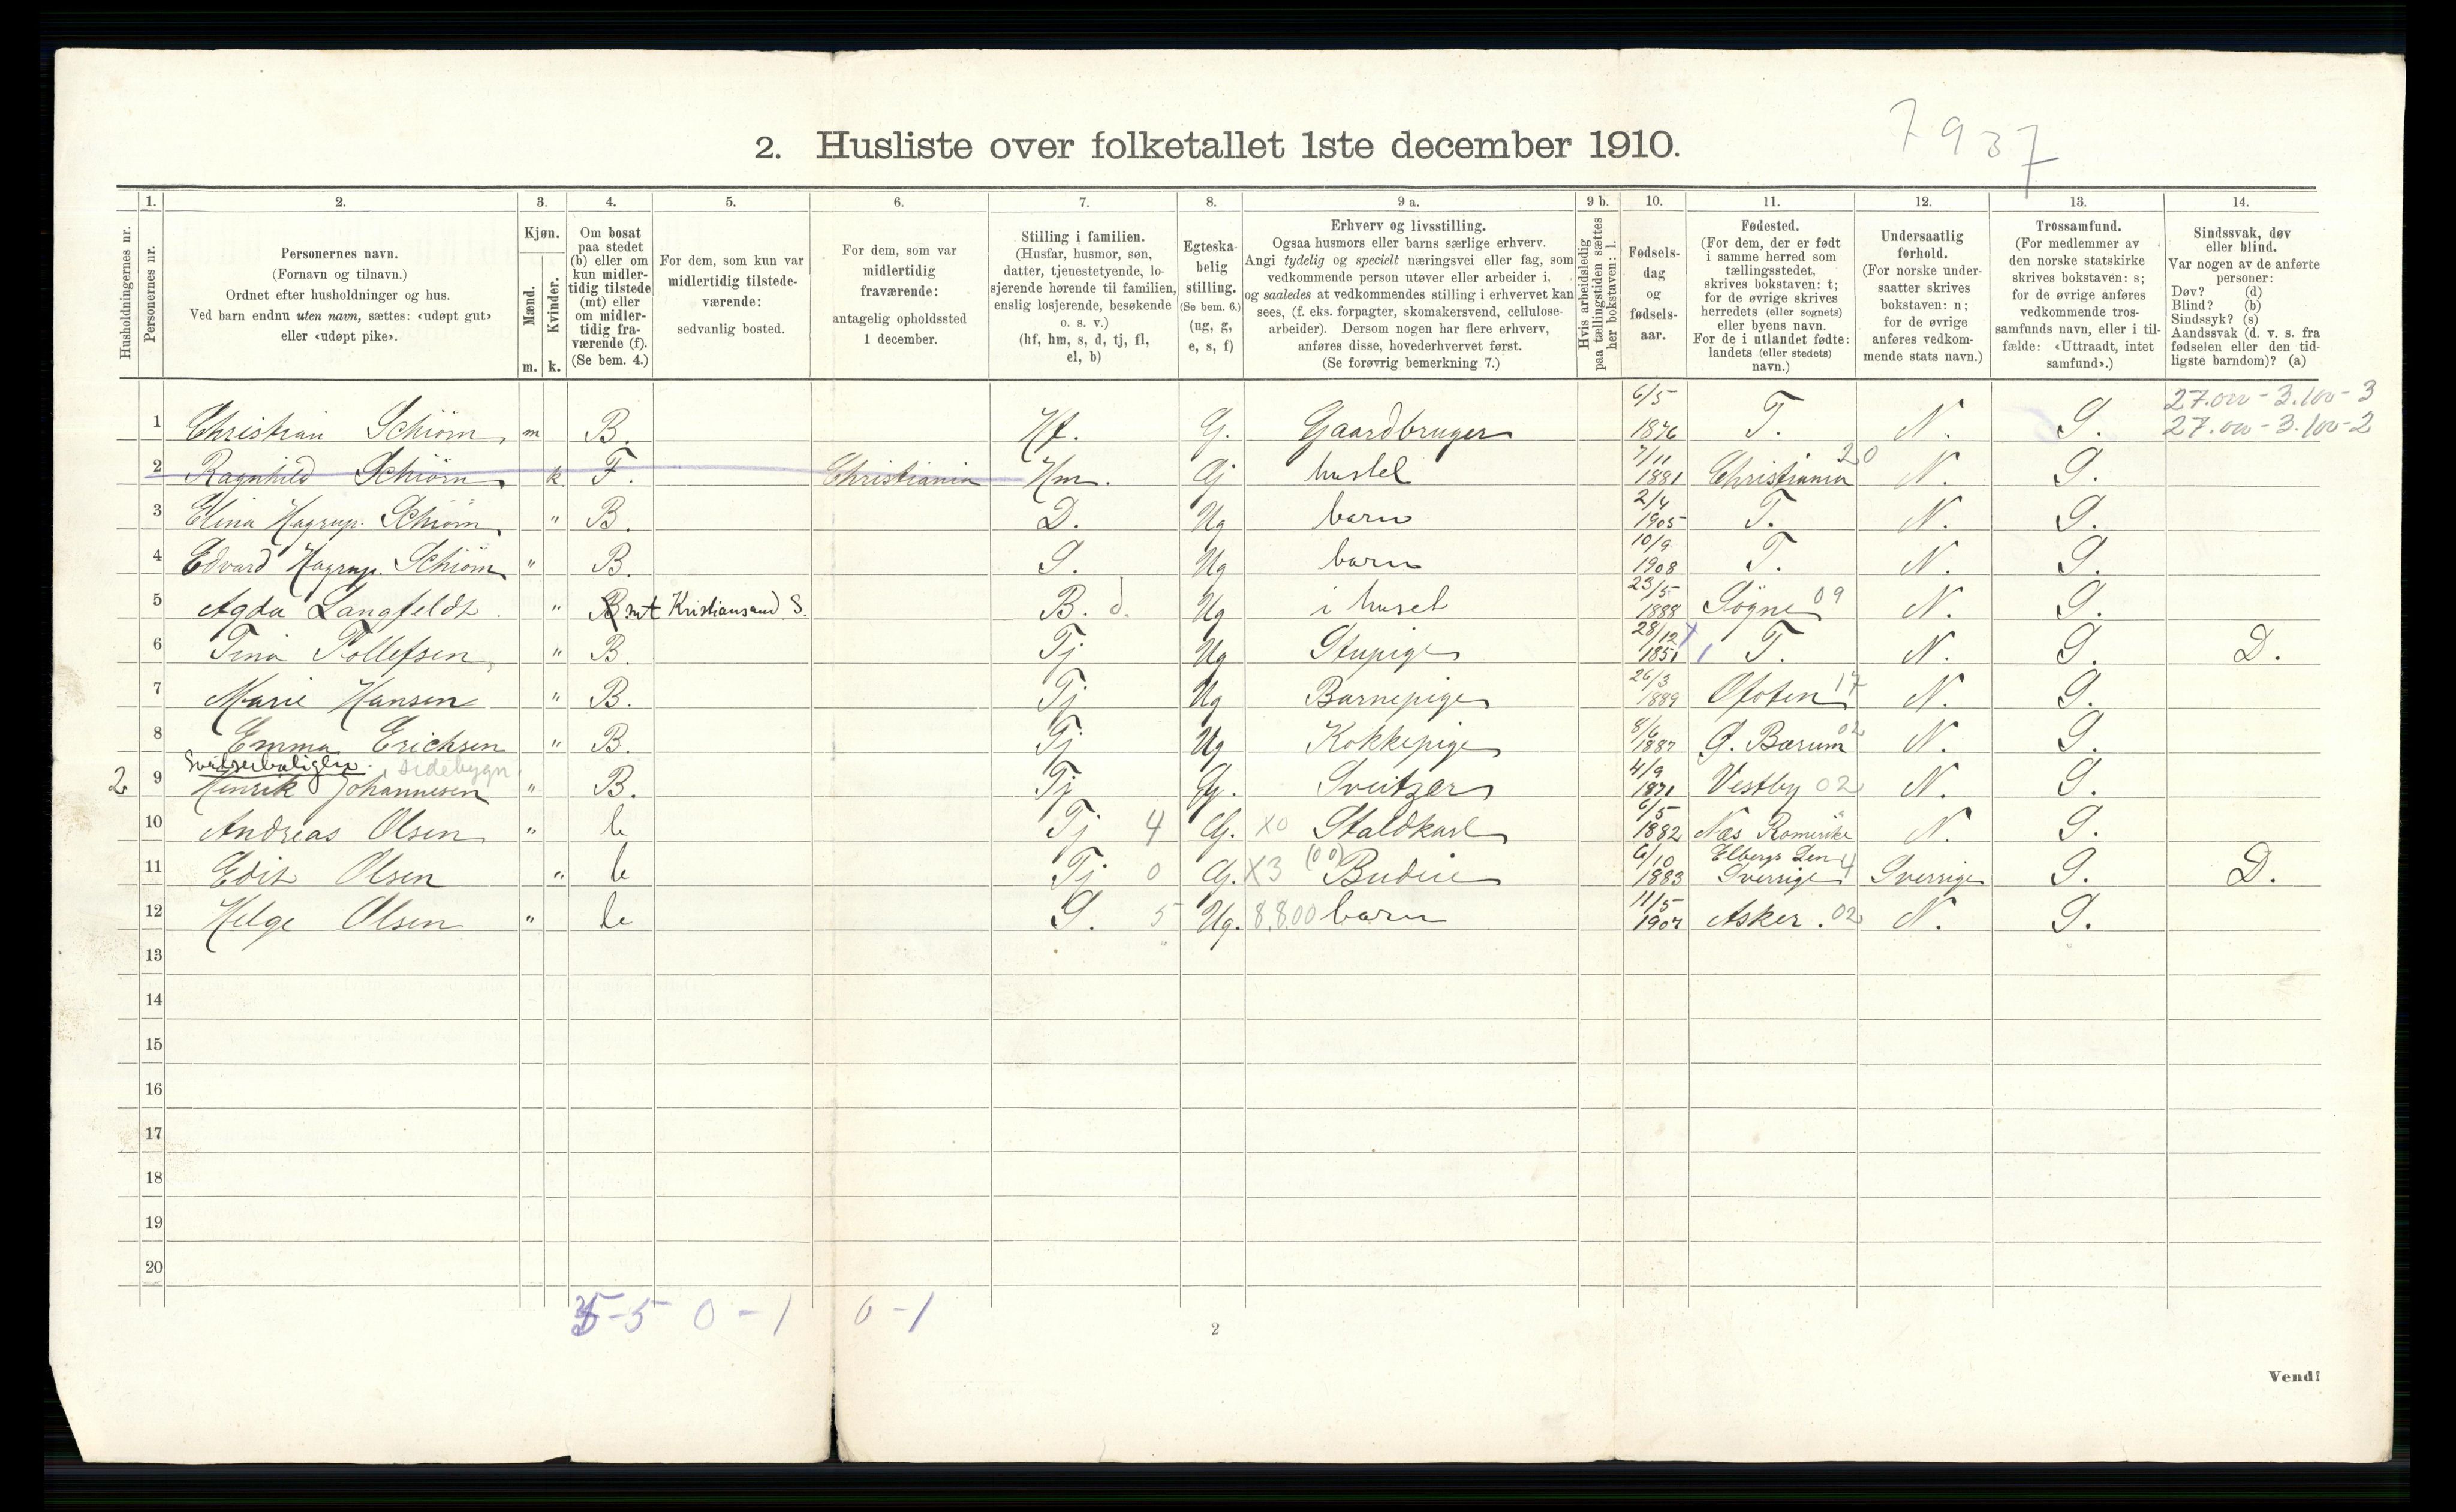 7937
2. Husliste over folketallet 1ste december 1910.
Husholdningernes nr.
1. Personernes nr.
2. Personernes navn. (Fornavn og tilnavn.) Ordnet efter husholdninger og hus. Ved barn endnu uten navn, sættes: «udøpt gut» eller «udøpt pike».
3. Kjøn. Mænd. m. Kvinder. k.
4. Om bosat paa stedet (b) eller om kun midlertidig tilstede (mt) eller om midlertidig fraværende (f). (Se bem. 4.)
5. For dem, som kun var midlertidig tilstedeværende: sedvanlig bosted.
6. For dem, som var midlertidig fraværende: antagelig opholdssted 1 december.
7. Stilling i familien. (Husfar, husmor, søn, datter, tjenestetyende, losjerende hørende til familien, enslig losjerende, besøkende o. s. v.) (hf, hm, s, d, tj, fl, el, b)
8. Egteskabelig stilling. (Se bem. 6.) (ug, g, e, s, f)
9 a. Erhverv og livsstilling. Ogsaa husmors eller barns særlige erhverv. Angi tydelig og specielt næringsvei eller fag, som vedkommende person utøver eller arbeider i, og saaledes at vedkommendes stilling i erhvervet kan sees, (f. eks. forpagter, skomakersvend, cellulosearbeider). Dersom nogen har flere erhverv, anføres disse, hovederhvervet først. (Se forøvrig bemerkning 7.)
9 b. Hvis arbeidsledig paa tællingstiden sættes her bokstaven: l.
10. Fødselsdag og fødselsaar.
11. Fødested. (For dem, der er født i samme herred som tællingsstedet, skrives bokstaven: t; for de øvrige skrives herredets (eller sognets) eller byens navn. For de i utlandet fødte: landets (eller stedets) navn.)
12. Undersaatlig forhold. (For norske undersaatter skrives bokstaven: n; for de øvrige anføres vedkommende stats navn.)
13. Trossamfund. (For medlemmer av den norske statskirke skrives bokstaven: s; for de øvrige anføres vedkommende trossamfunds navn, eller i tilfælde: «Uttraadt, intet samfund».)
14. Sindssvak, døv eller blind. Var nogen av de anførte personer: Døv? (d) Blind? (b) Sindssyk? (s) Aandssvak (d. v. s. fra fødselen eller den tidligste barndom)? (a)
27.000 - 3.100 - 3
1 Christian Schiörn m B. Hf. G. Gaardbruger 6/5 1876 T. N. S. 27.000 - 3.100 - 2
2 Ragnhild Schiörn k F. Christiania Hm. G hustel 7/11 1881 Christiania 20 N. S.
3 Elina Hagrup Schiörn " B. D. Ug barn 2/4 1905 T. N. S.
4 Edvard Hagrup Schiörn " B. S. Ug barn 10/9 1908 T. N. S.
5 Agda Langfeldt " B mt Kristiansand S. B. d. Ug i huset 23/5 1888 Sögne 09 N. S.
6 Tina Tollefsen " B. Tj Ug Stupige 28/12 1851 T. N. S. D.
7 Marie Hansen " B. Tj Ug Barnepige 26/3 1889 Ofoten 17 N. S.
8 Emma Erichsen " B. Tj Ug Kokkepige 8/6 1887 Ø. Bærum 02 N. S.
Sveitserboligen. sidebygn.
2 9 Henrik Johannesen " B. Tj Ug. Sveitzer 4/9 1871 Vestby 02 N. S.
10 Andreas Olsen " b Tj 4 G. X0 Staldkarl 6/5 1882 Næs Romerike N. S.
11 Edit Olsen " b Tj 0 G. X3 (00) Budeie 6/10 1883 Elbergs Len Sverrige 4 Sverrige S. D.
12 Helge Olsen " b S. 5 Ug. 8.8.00 barn 11/5 1907 Asker. 02 N. S.
13
14
15
16
17
18
19
20
5-5 0-1 0-1
2
Vend!